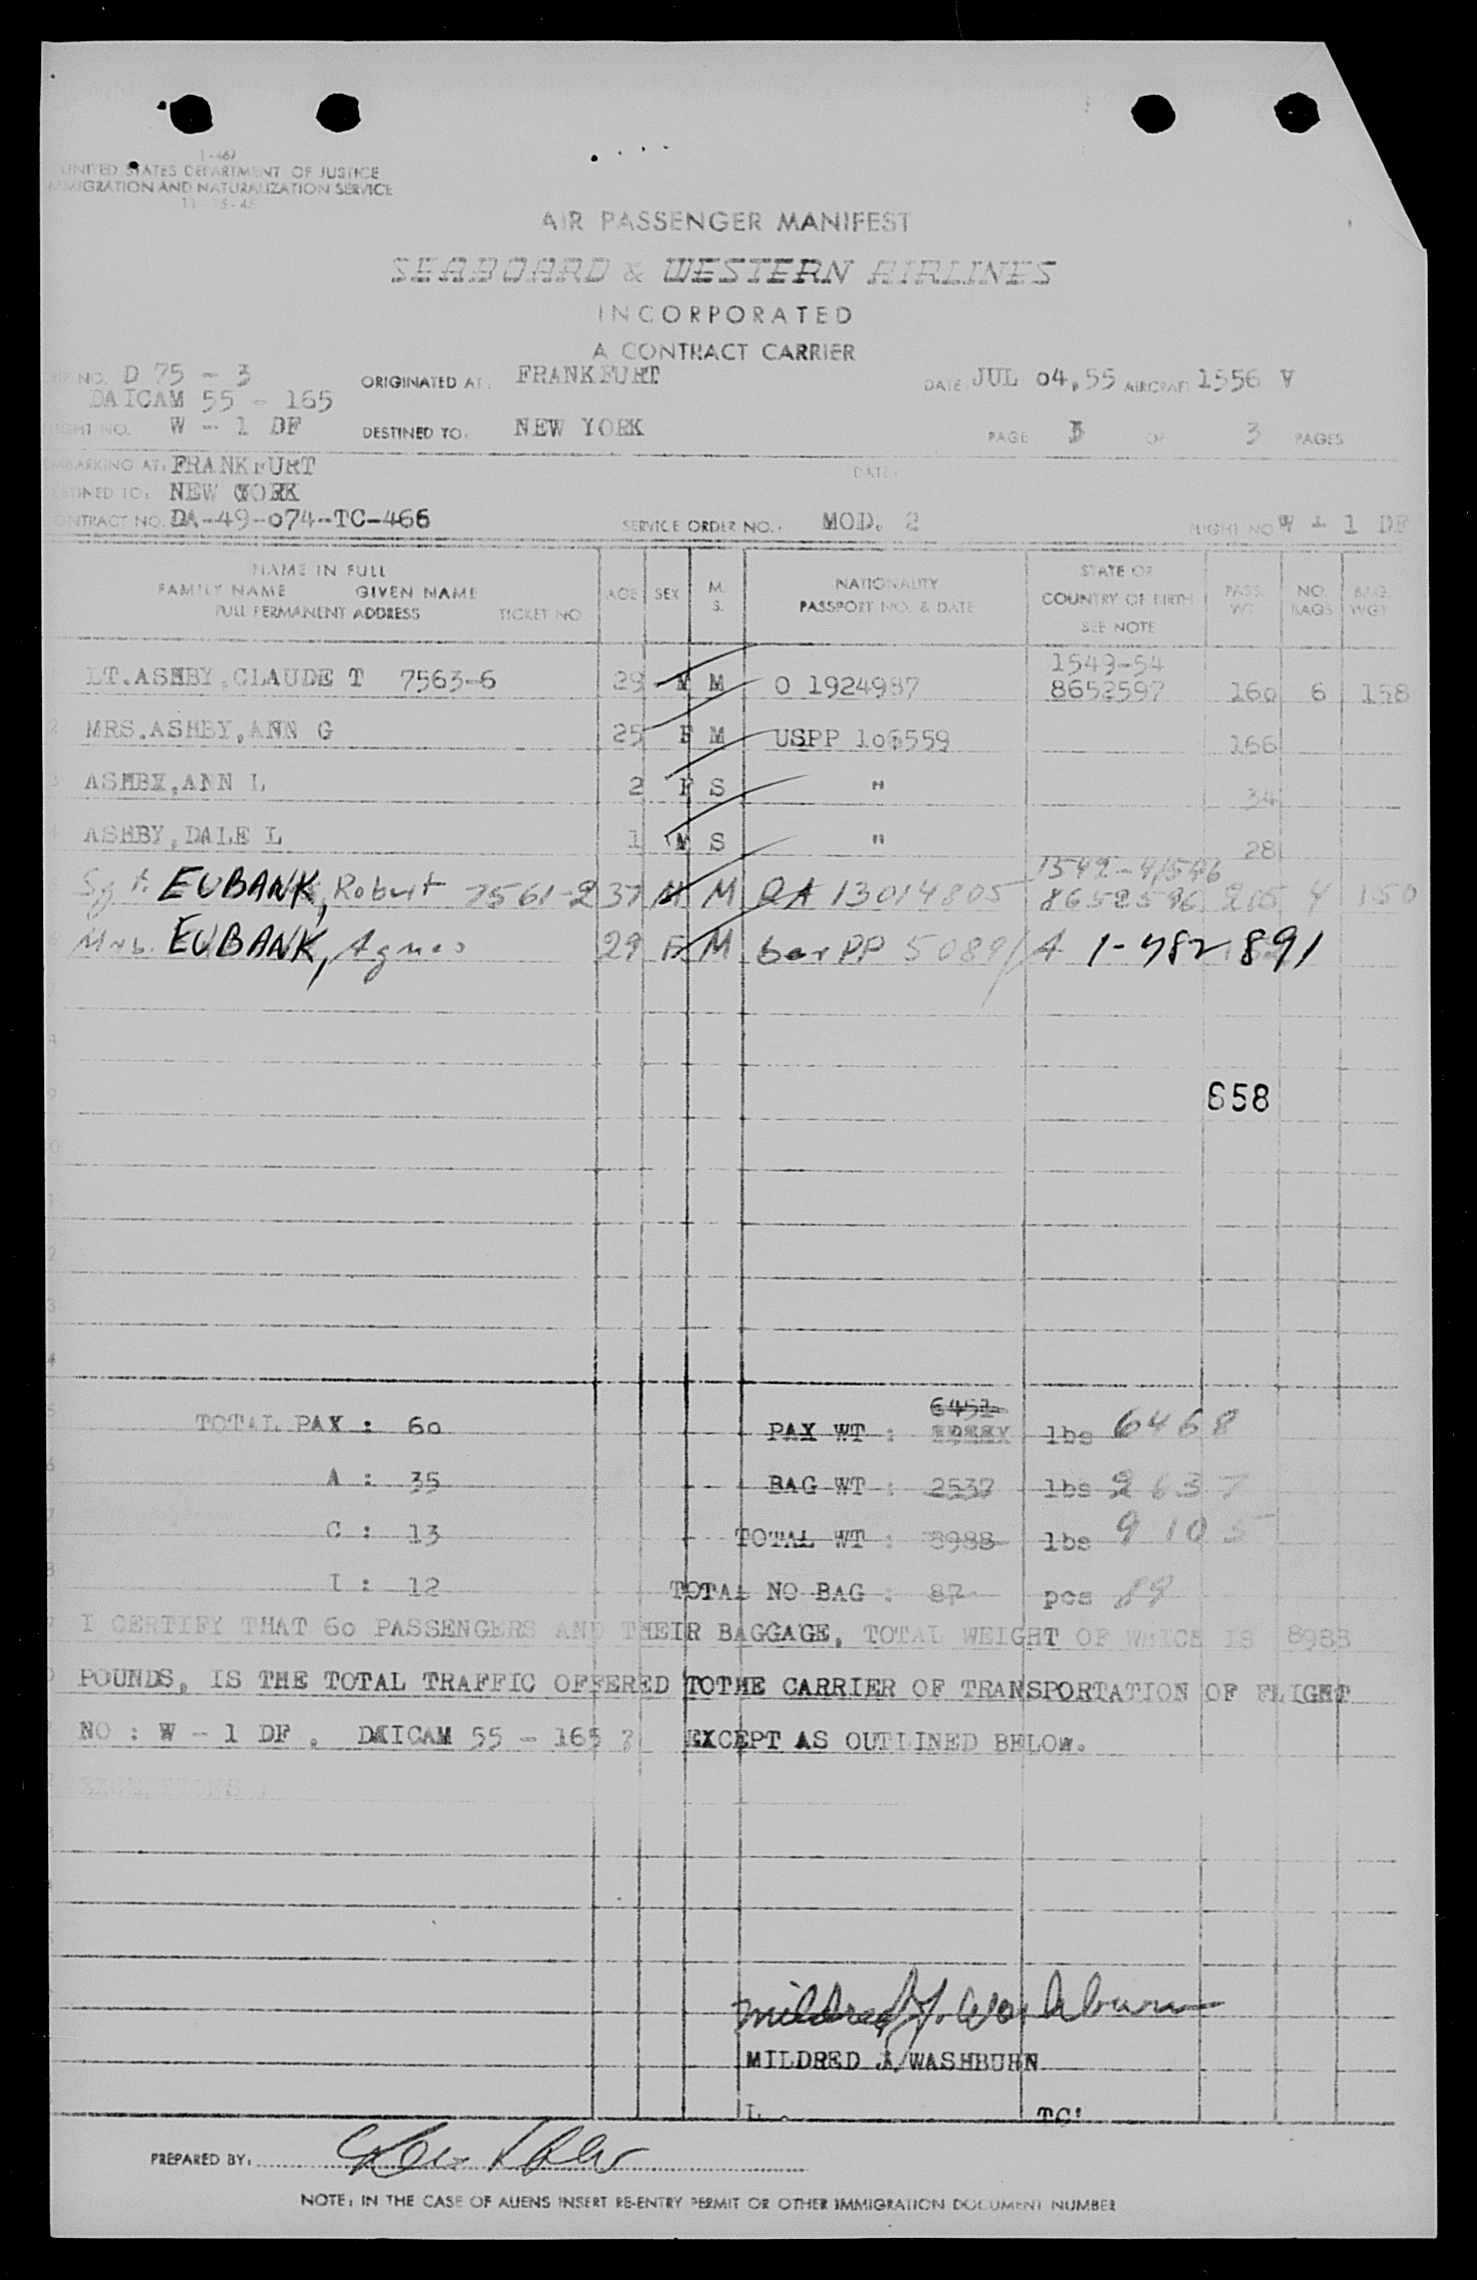 I-467
UNITED STATES DEPARTMENT OF JUSTICE
IMMIGRATION AND NATURALIZATION SERVICE
AIR PASSENGER MANIFEST
SEABOARD & WESTERN AIRLINES
INCORPORATED
A CONTRACT CARRIER
NO. D 75 - 3 ORIGINATED AT: FRANKFURT DATE: JUL 04,55 AIRCRAFT 1556 V
DAICAM 55 - 165
FLIGHT NO. W - 1 DF DESTINED TO: NEW YORK PAGE 3 OF 3 PAGES
EMBARKING AT: FRANKFURT DATE:
DESTINED TO: NEW YORK
CONTRACT NO. DA-49-074-TC-466 SERVICE ORDER NO.: MOD. 2 FLIGHT NO W - 1 DF
NAME IN FULL
FAMILY NAME GIVEN NAME
FULL PERMANENT ADDRESS TICKET NO AGE SEX M. S. NATIONALITY PASSPORT NO. & DATE STATE OF COUNTRY OF BIRTH SEE NOTE PASS. WT. NO. BAGS BAG. WGT.
1549-54
LT.ASHBY,CLAUDE T 7563-6 29 M M O 1924987 8652597 160 6 158
2 MRS.ASHBY,ANN G 25 F M USPP 106559 166
3 ASHBY,ANN L 2 F S " 34
4 ASHBY,DALE L 1 M S " 28
Sgt. EUBANK, Robert 7561-2 37 M M RA 13014805 8652596 205 4 150
Mrs. EUBANK, Agnes 29 F M GerPP 5089 A 1-482 891
658
6451
TOTAL PAX : 60 PAX WT : lbs 6468
A : 35 BAG WT : 2537 lbs 2637
C : 13 TOTAL WT : 8988 lbs 9105
I : 12 TOTAL NO BAG : 87 pcs 89
I CERTIFY THAT 60 PASSENGERS AND THEIR BAGGAGE, TOTAL WEIGHT OF WHICH IS 8988
POUNDS, IS THE TOTAL TRAFFIC OFFERED TOTHE CARRIER OF TRANSPORTATION OF FLIGHT
NO : W - 1 DF . DAICAM 55 - 165 EXCEPT AS OUTLINED BELOW.
Mildred J. Washburn
MILDRED J. WASHBURN
PREPARED BY:
NOTE: IN THE CASE OF ALIENS INSERT RE-ENTRY PERMIT OR OTHER IMMIGRATION DOCUMENT NUMBER